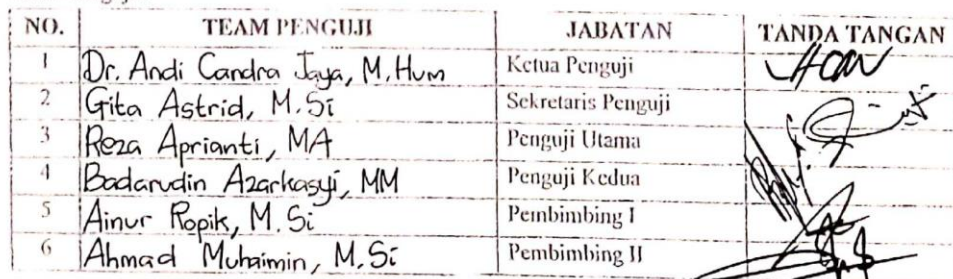 NO. TEAM PENGUJI JABATAN TANDA TANGAN
1 Dr. Andi Candra Jaya, M.Hum Ketua Penguji
2 Gita Astrid, M.Si Sekretaris Penguji
3 Reza Aprianti, MA Penguji Utama
4 Badarudin Azarkasyi, MM Penguji Kedua
5 Ainur Ropik, M.Si Pembimbing I
6 Ahmad Muhaimin, M.Si Pembimbing II